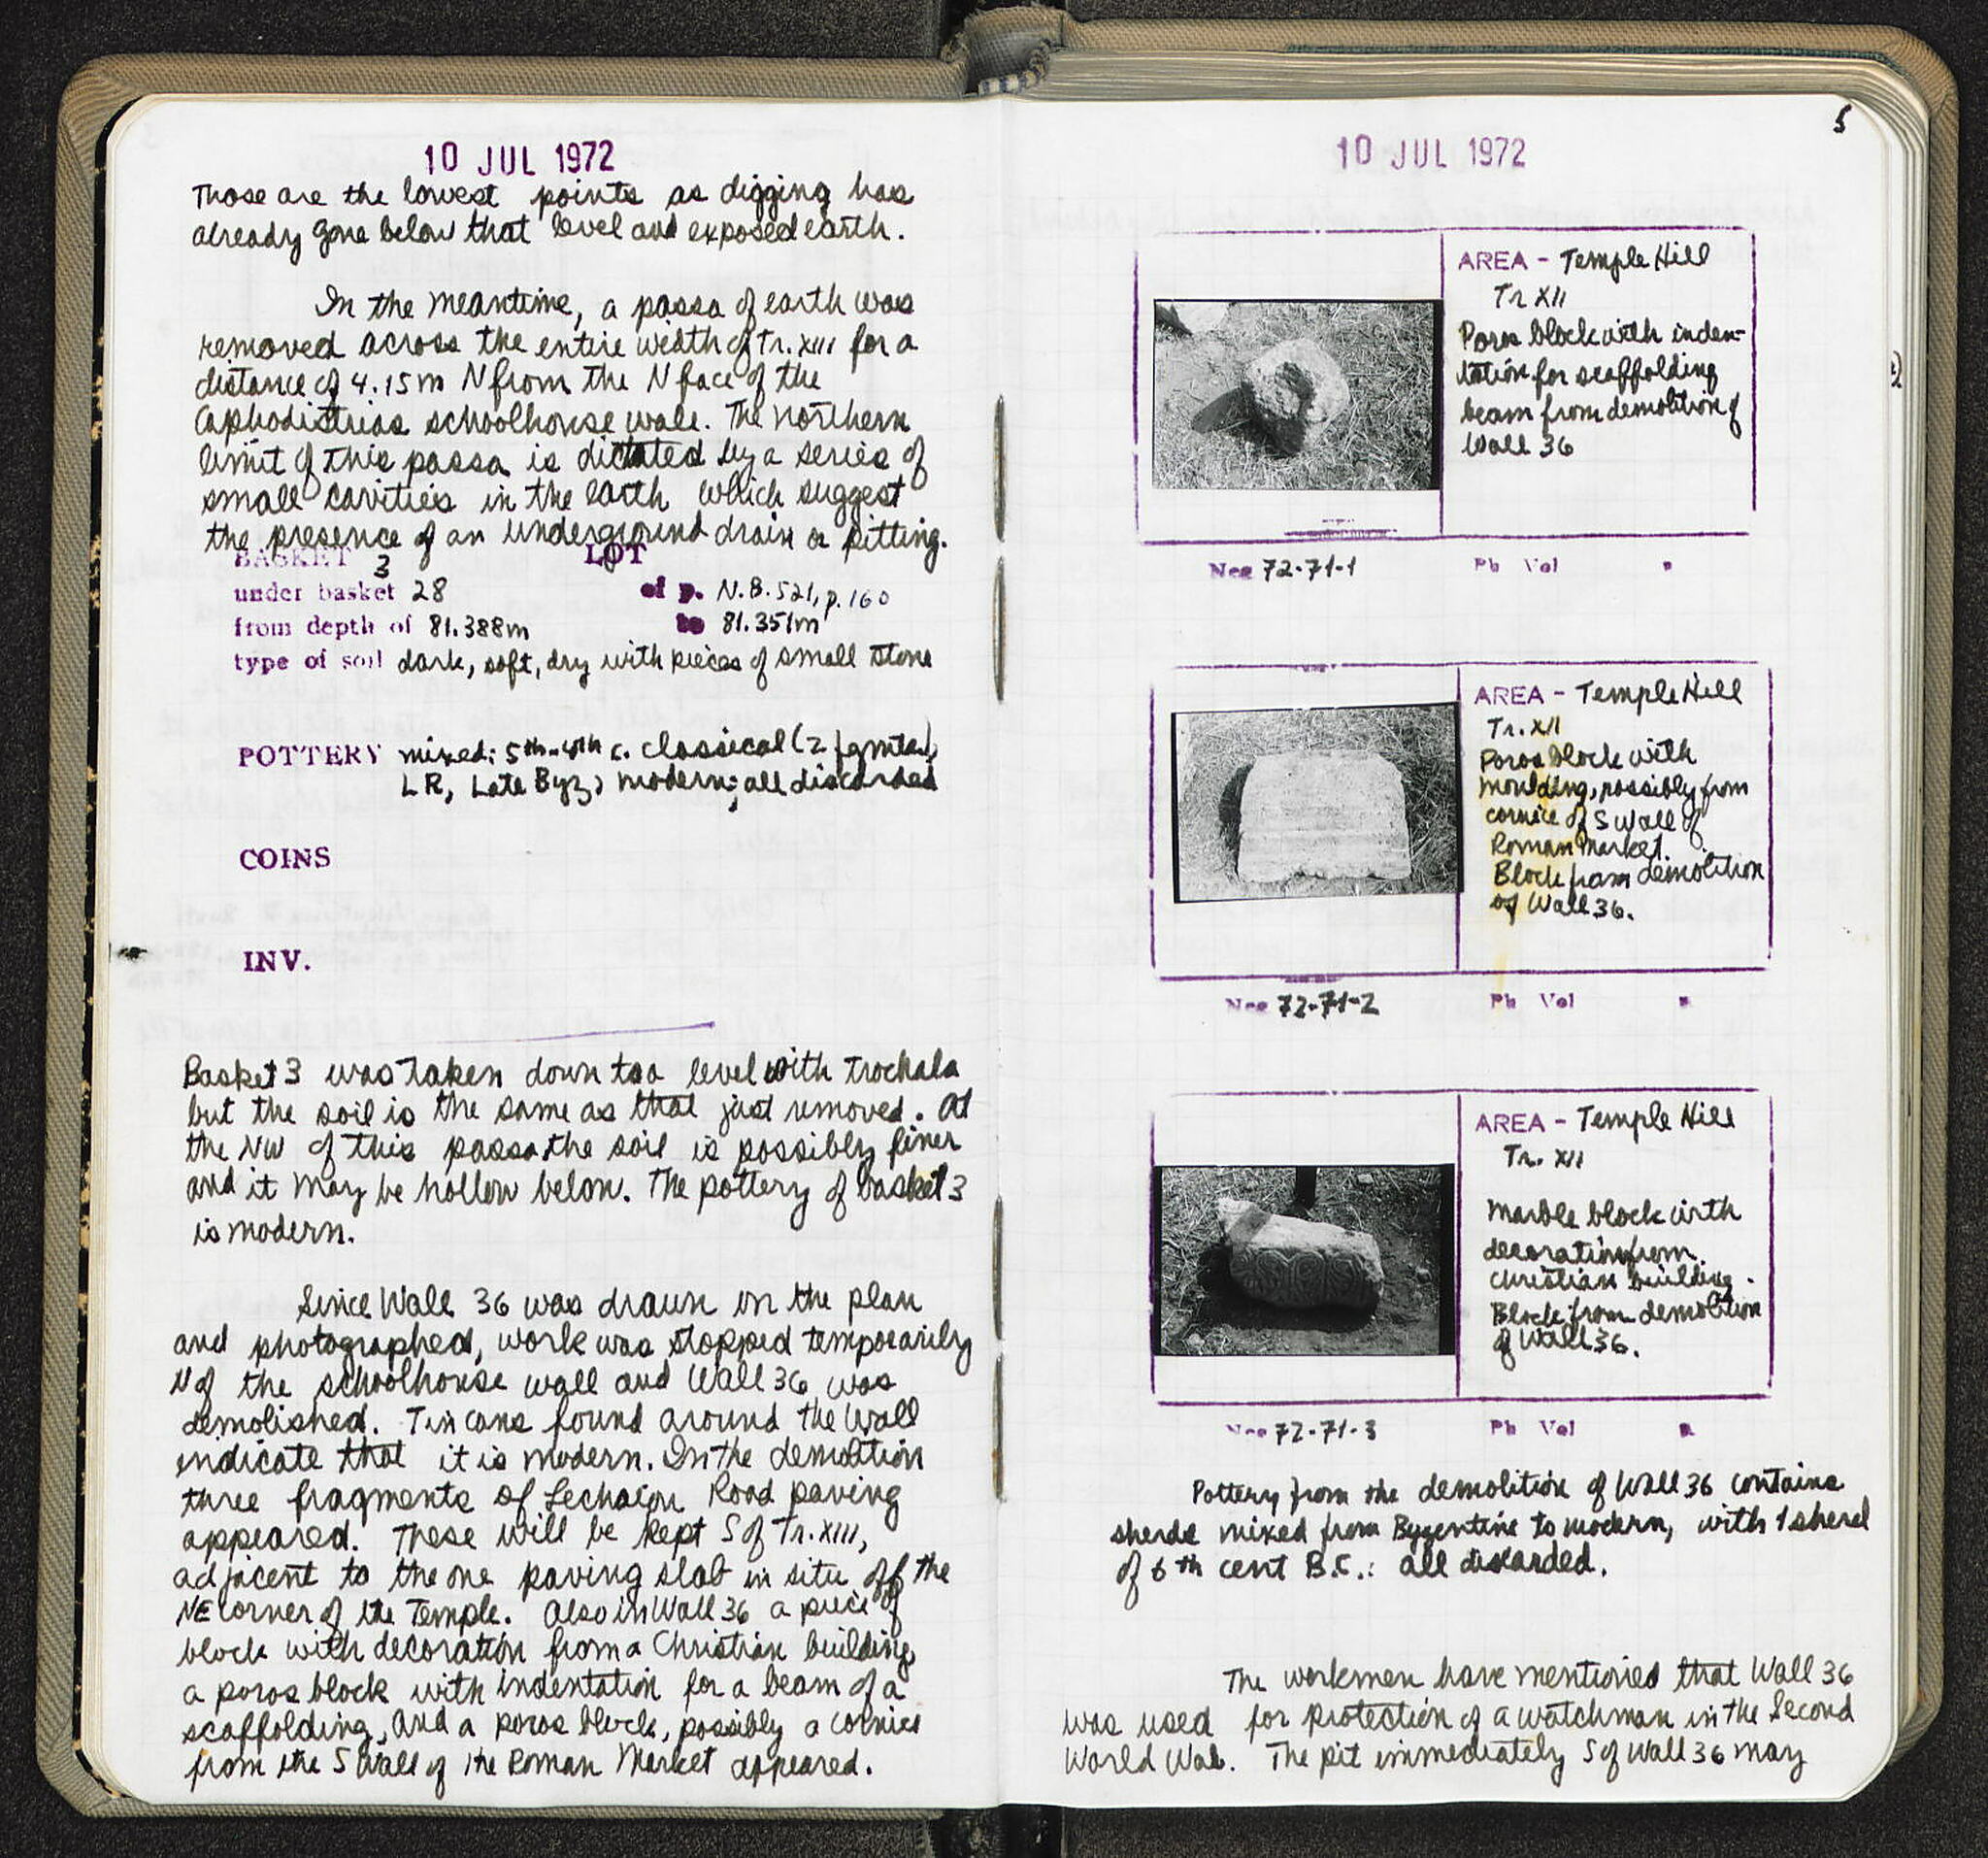 10 JUL 1972
Those are the lowest points as digging has
already gone below that level and exposed earth.
In the meantime, a passa of earth was
removed across the entire width of Tr. XIII for a
distance of 4.15m N from the N face of the
Caphodistrias schoolhouse wall. The northern
limit of this passa is dictated by a series of
small cavities in the earth which suggest
the presence of an underground drain or pitting.
BASKET 3 LOT
under basket 28 of p. N.B. 521, p. 160
from depth of 81.388m to 81.351m
type of soil dark, soft, dry with pieces of small stone
POTTERY mixed: 5th-4th c. classical (2 fgmts),
LR, Late Byz, modern; all discarded
COINS
INV.
Basket 3 was taken down to a level with trochala
but the soil is the same as that just removed. At
the NW of this passa the soil is possibly finer
and it may be hollow below. The pottery of basket 3
is modern.
Since Wall 36 was drawn on the plan
and photographed, work was stopped temporarily
N of the schoolhouse wall and Wall 36 was
demolished. Tin cans found around the wall
indicate that it is modern. In the demolition
three fragments of Lechaion Road paving
appeared. These will be kept S of Tr. XIII,
adjacent to the one paving slab in situ off the
NE corner of the Temple. Also in Wall 36 a piece of
block with decoration from a Christian building,
a poros block with indentation for a beam of a
scaffolding, and a poros block, possibly a cornice
from the S Wall of the Roman Market appeared.
5
10 JUL 1972
AREA - Temple Hill
Tr XII
Poros block with inden-
tation for scaffolding
beam from demolition of
Wall 36
Neg 72-71-1 Ph Vol
AREA - Temple Hill
Tr. XII
Poros block with
moulding, possibly from
cornice of S Wall of
Roman Market.
Block from demolition
of Wall 36.
Neg 72-71-2 Ph Vol
AREA - Temple Hill
Tr. XII
Marble block with
decoration from
Christian building.
Block from demolition
of Wall 36.
Neg 72-71-3 Ph Vol
Pottery from the demolition of Wall 36 contains
sherds mixed from Byzentine to modern, with 1 sherd
of 6th cent B.C.: all discarded.
The workmen have mentioned that Wall 36
was used for protection of a watchman in the Second
World War. The pit immediately S of Wall 36 may